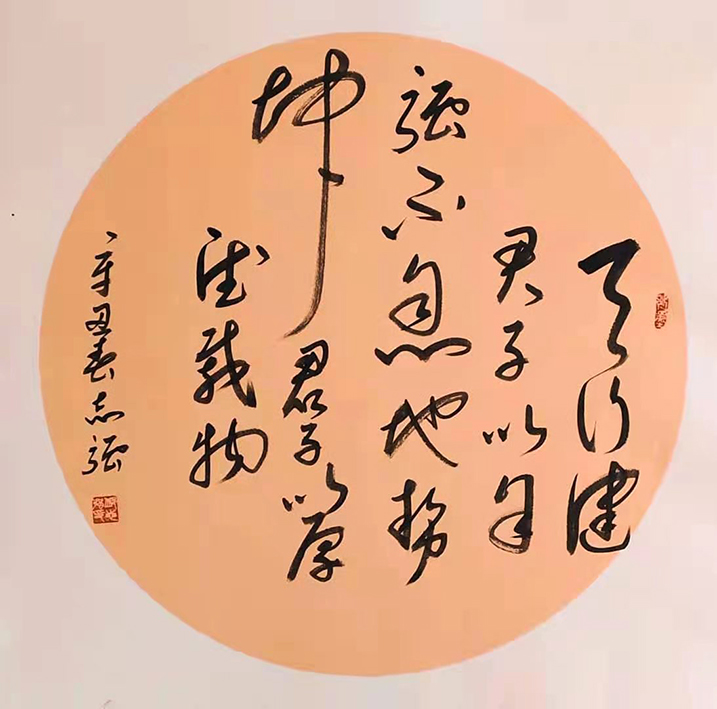 天行健
君子以自
强不息地势
坤君子以厚
德载物
辛丑春志强